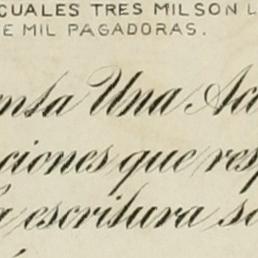 CUALES TRES MIL SON L
E MIL PAGADORAS.
enta Una Acc
ciones que resp
a escritura so